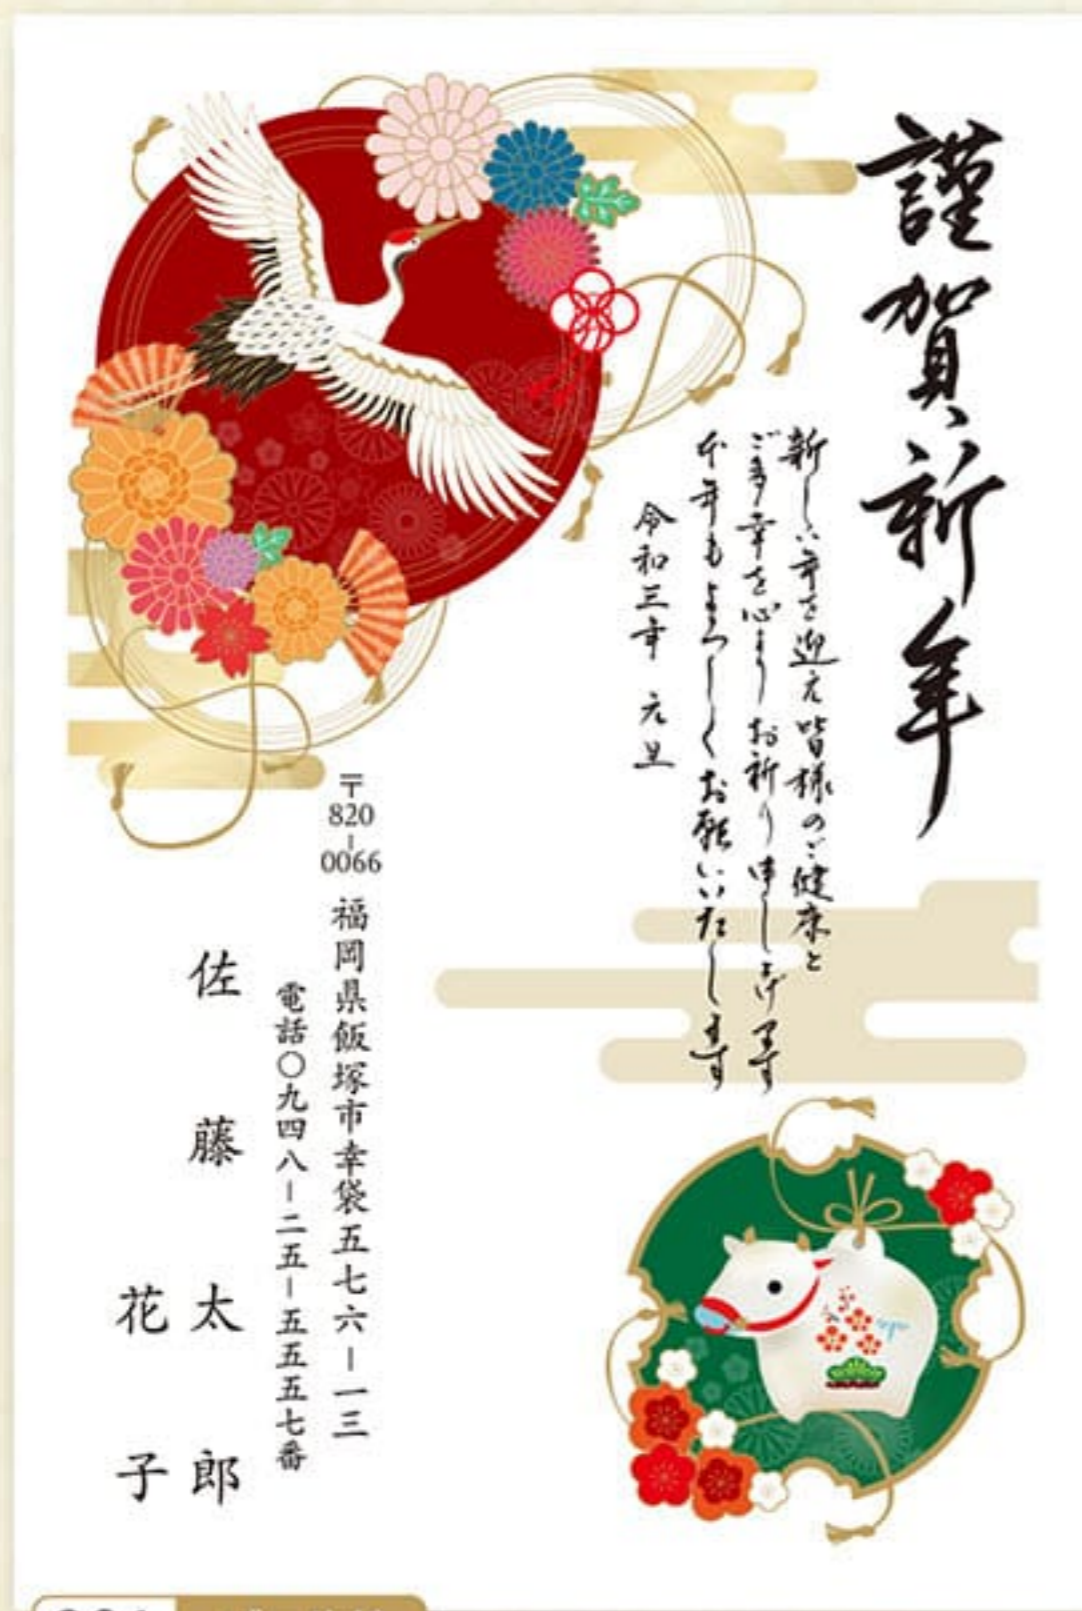 謹賀新年
新しい年を迎え皆様のご健康と
ご多幸を心よりお祈り申し上げます
本年もよろしくお願いいたします
令和三年 元旦
〒820-0066 福岡県飯塚市幸袋五七六ー一三
電話〇九四八ー二五ー五五五七番
佐藤太郎
花子